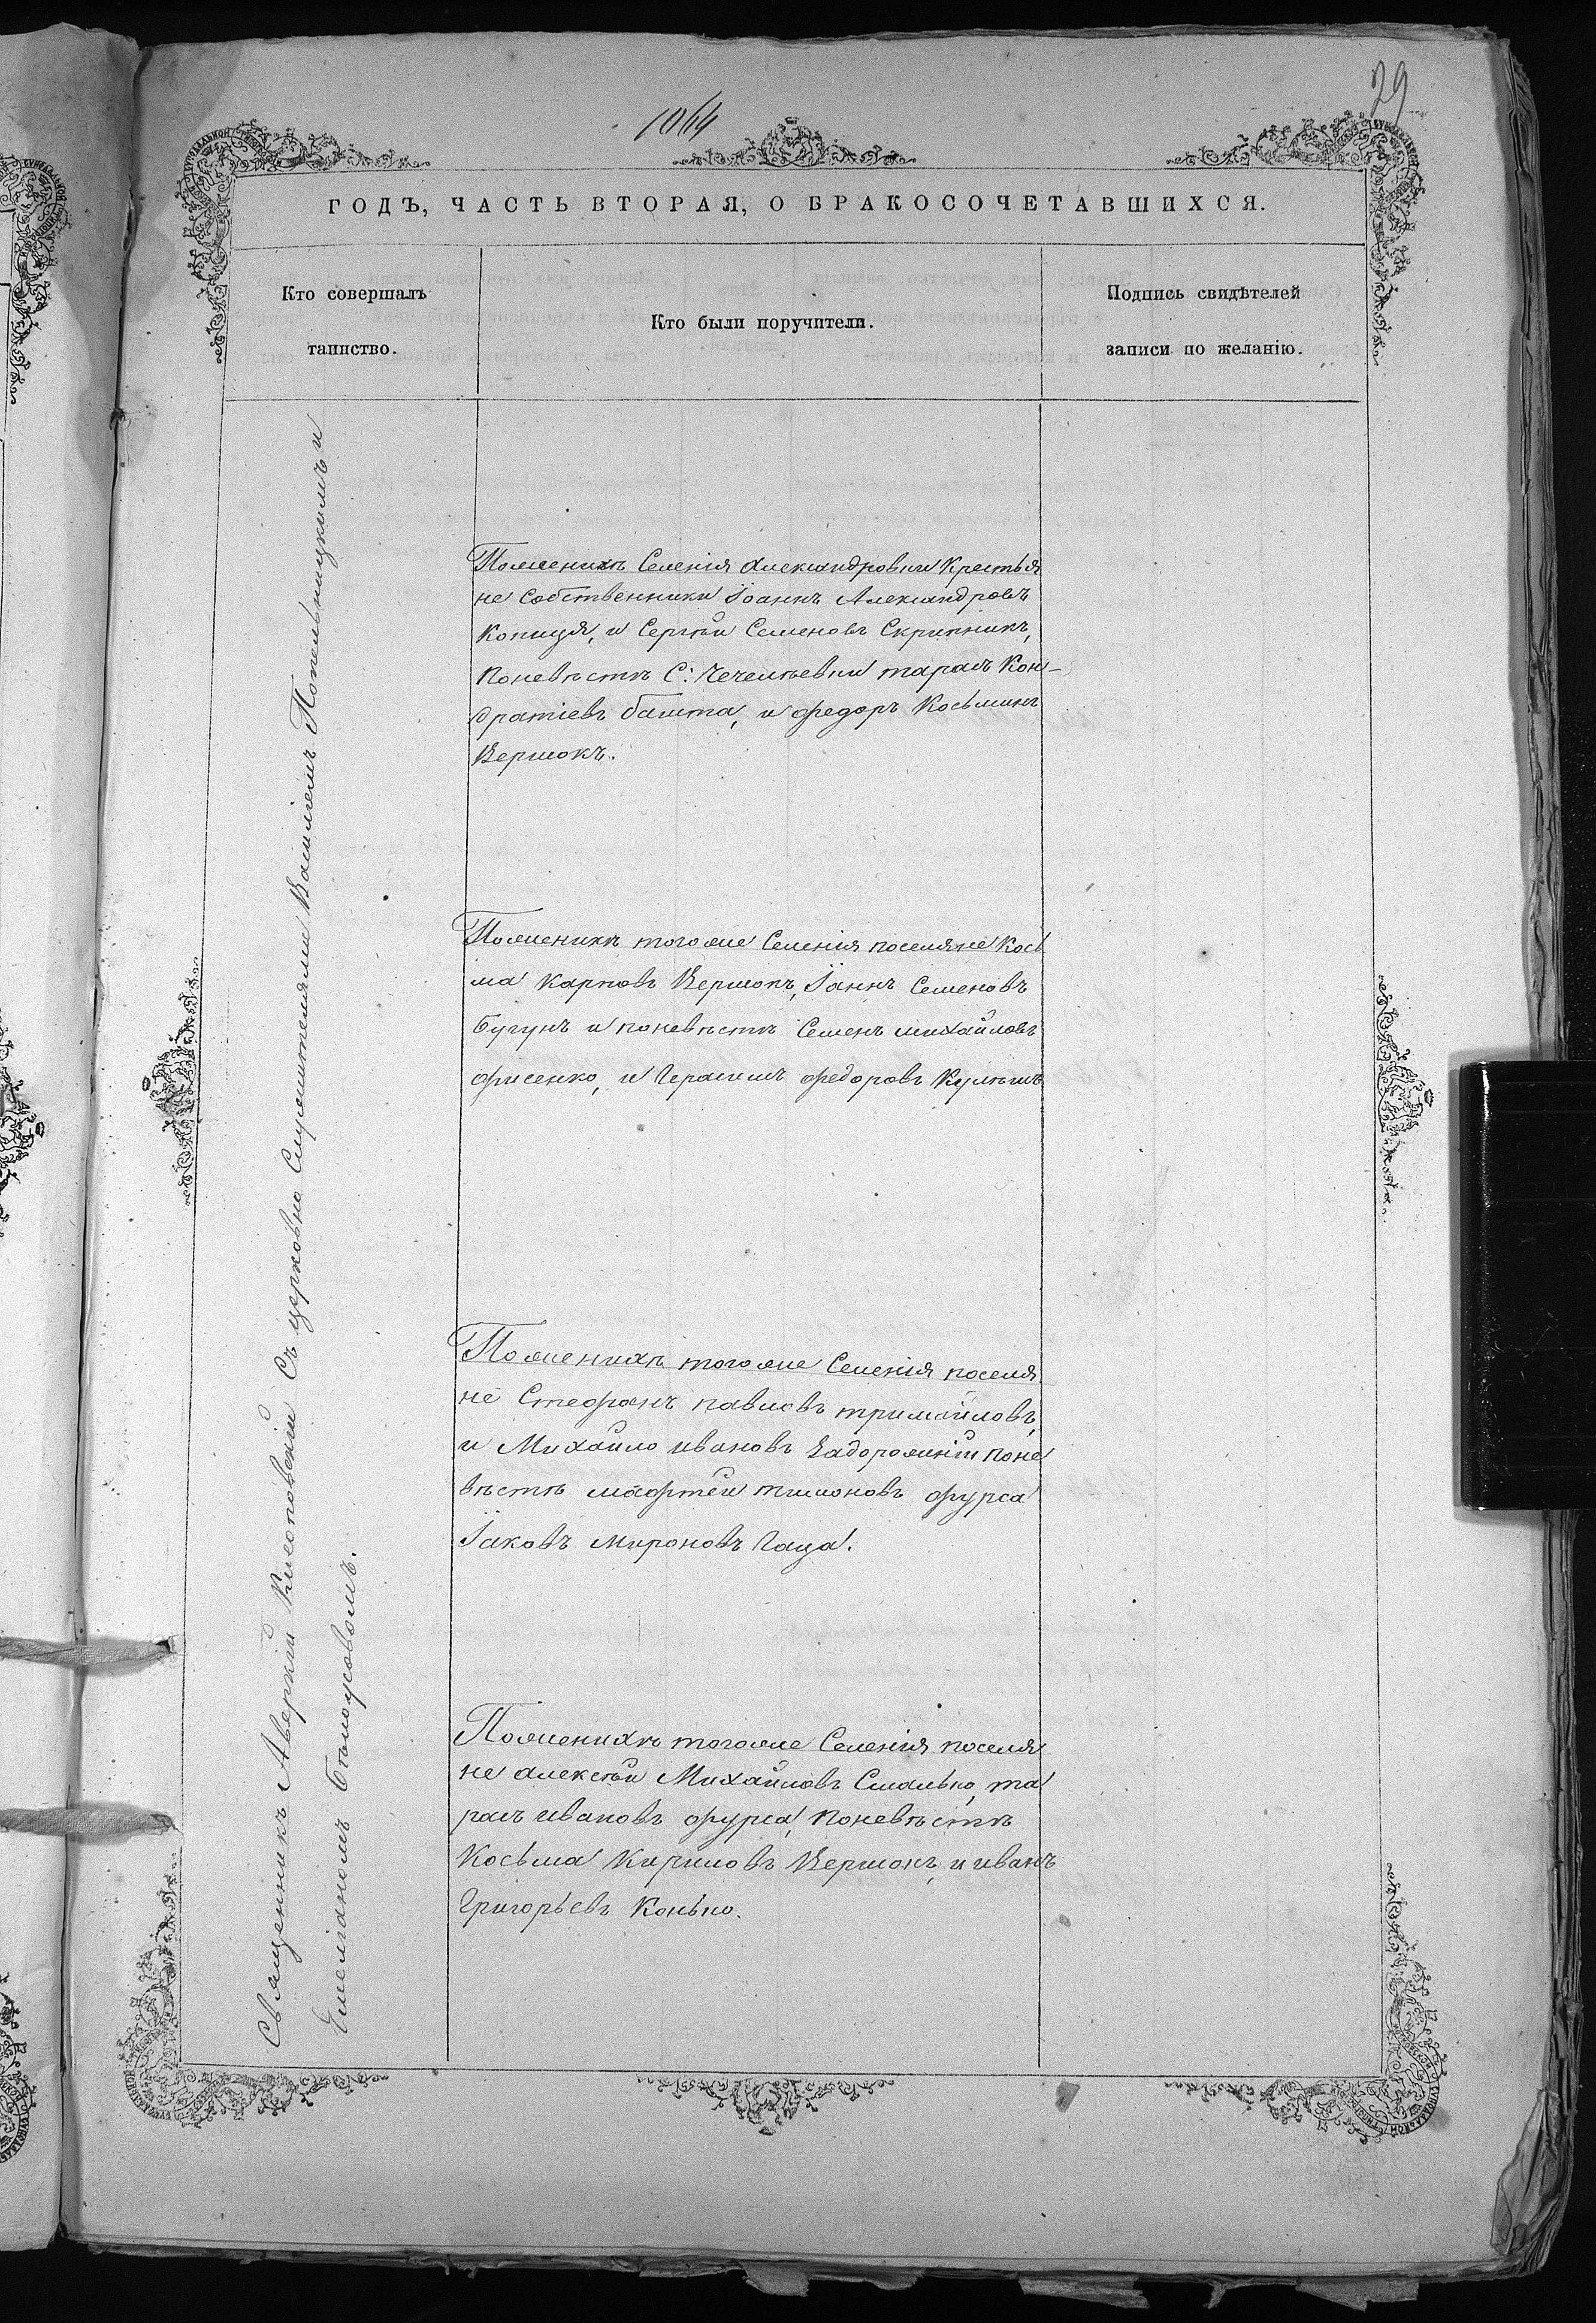 29
1064
ГОДЪ, ЧАСТЬ ВТОРАЯ, О БРАКОСОЧЕТАВШИХСЯ.
Кто совершалъ
таинство.
Кто были поручители.
Подпись свидѣтелей
записи по желанію.
Священникъ Аверкій Клеоповскій Съ церковно Служителями Василіемъ Потельницкимъ и
Емеліаномъ Бѣлоусовомъ.
Поженихѣ Селенія Александровки Крестья
не Собственники Іоаннъ Александровъ
Копиця, и Сергѣй Семеновъ Скрипникъ,
Поневѣстѣ С: Чечелѣевки тарасъ Кон-
дратіевъ башта, и федоръ Косьминъ
Вершокъ.
Поженихѣ тогоже Селенія поселяне Кось
ма Карповъ Вершокъ, Іаннъ Семеновъ
Бугунъ и поневѣстѣ Семенъ михайловъ
фисенко, и Герасимъ федоровъ Кулѣшъ
Поженихѣ тогоже Селенія поселя
не Стефанъ павловъ тримайловъ,
и Михайло ивановъ Задорожній поне
вѣстѣ мафтей тимоновъ фурса
Іаковъ мироновъ Гаца.
Поженихѣ тогоже Селенія поселя
не алексѣй Михайловъ Смалько, та
расъ ивановъ фурса, поневѣстѣ
Косьма Кириловъ Вершокъ, и иванъ
Григорьевъ Конько.